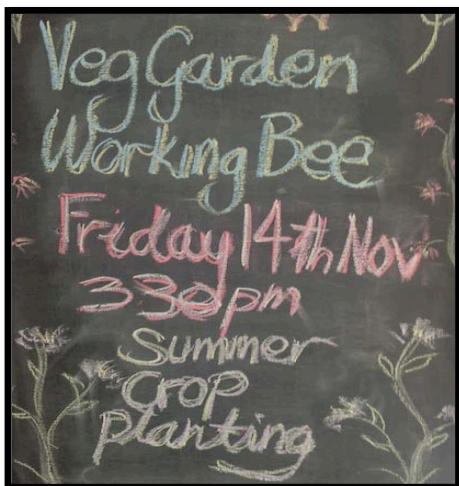 Veg Garden
Working Bee
Friday 14th Nov
330pm
Summer
Crop
Planting